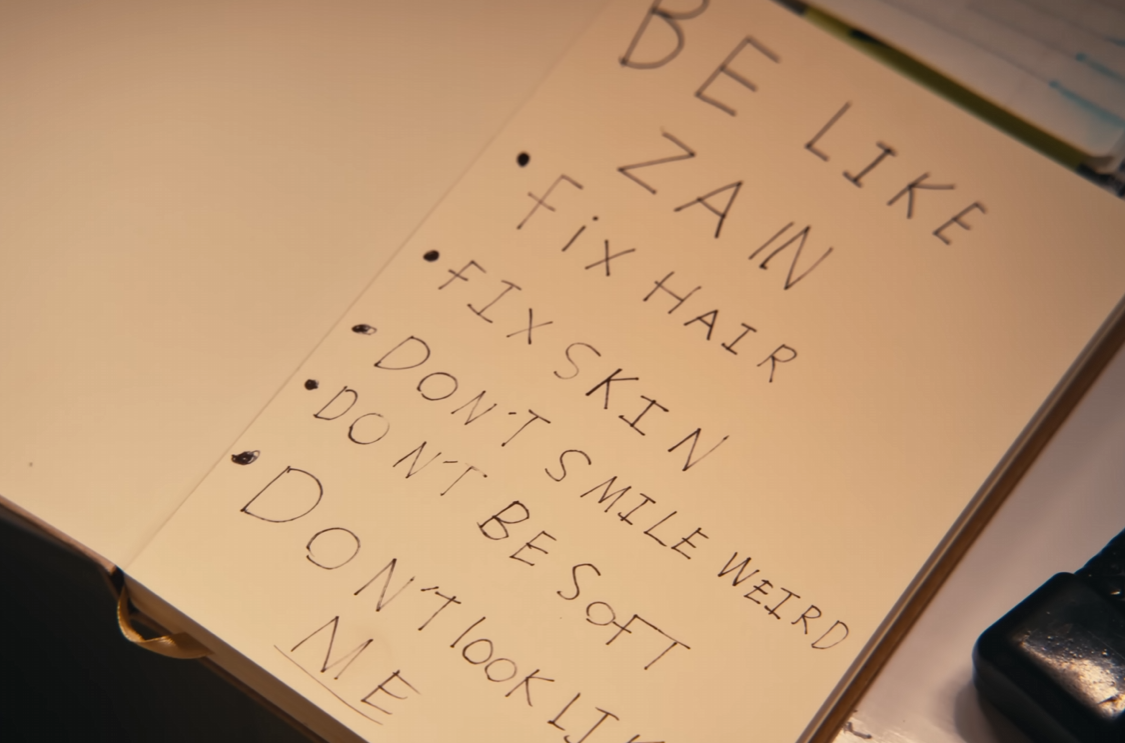 BE LIKE
ZAIN
• FiX HAIR
• FIX SKIN
• DON'T SMILE WEIRD
• DON'T BE SOFT
• DON'T lOOK LIK
ME